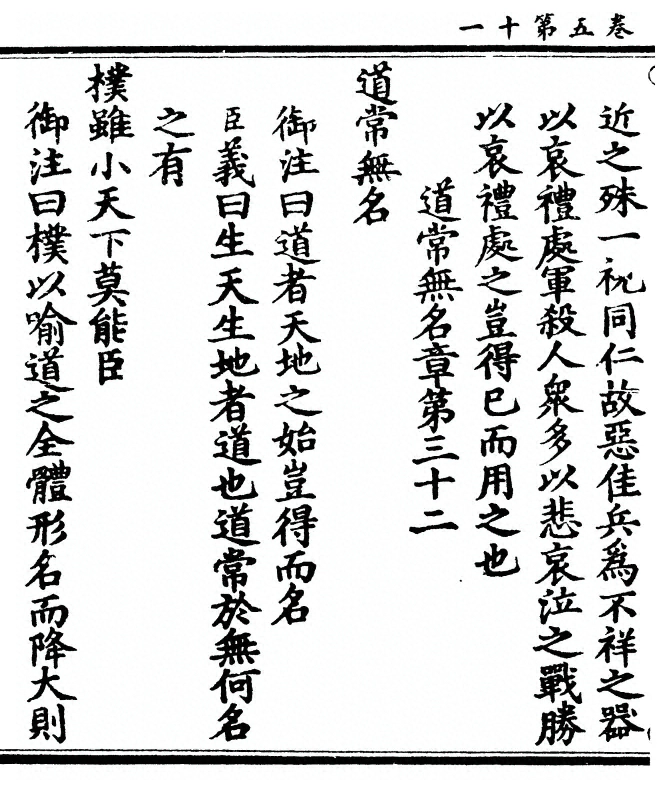 卷五第十一
近之殊一視同仁故惡佳兵爲不祥之器
以哀禮處軍殺人衆多以悲哀泣之戰勝
以哀禮處之豈得已而用之也
道常無名章第三十二
道常無名
御注曰道者天地之始豈得而名
臣義曰生天生地者道也道常於無何名
之有
樸雖小天下莫能臣
御注曰樸以喻道之全體形名而降大則